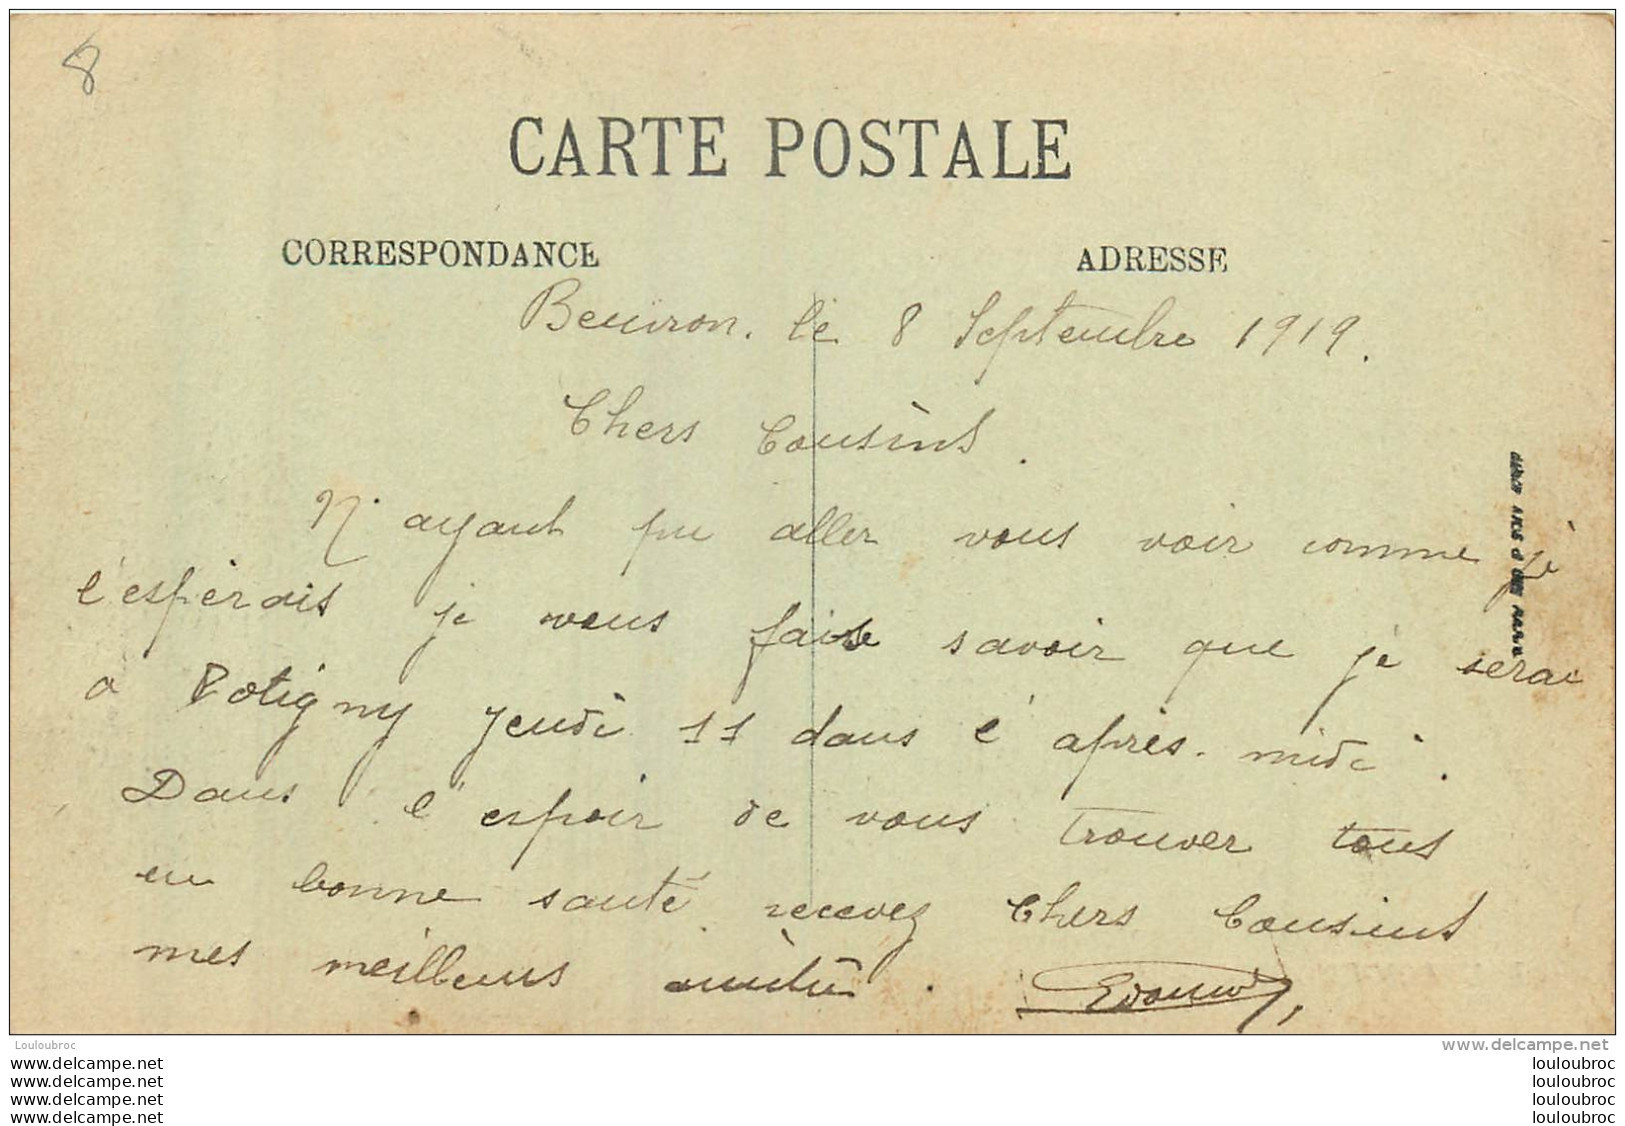 8
CARTE POSTALE
CORRESPONDANCE
ADRESSE
Beuvron. le 8 Septembre 1919.
Chers Cousins.
N'ayant pu aller vous voir comme je
l'espèrais je vous faire savoir que je serai
a Potigny jeudi 11 dans l'après-midi.
Dans l'espoir de vous trouver tous
en bonne santé recevez Chers Cousins
mes meilleurs amitiés.
Edouard
Louloubroc
www.delcampe.net
www.delcampe.net
louloubroc
www.delcampe.net
louloubroc
www.delcampe.net
louloubroc
www.delcampe.net
louloubroc